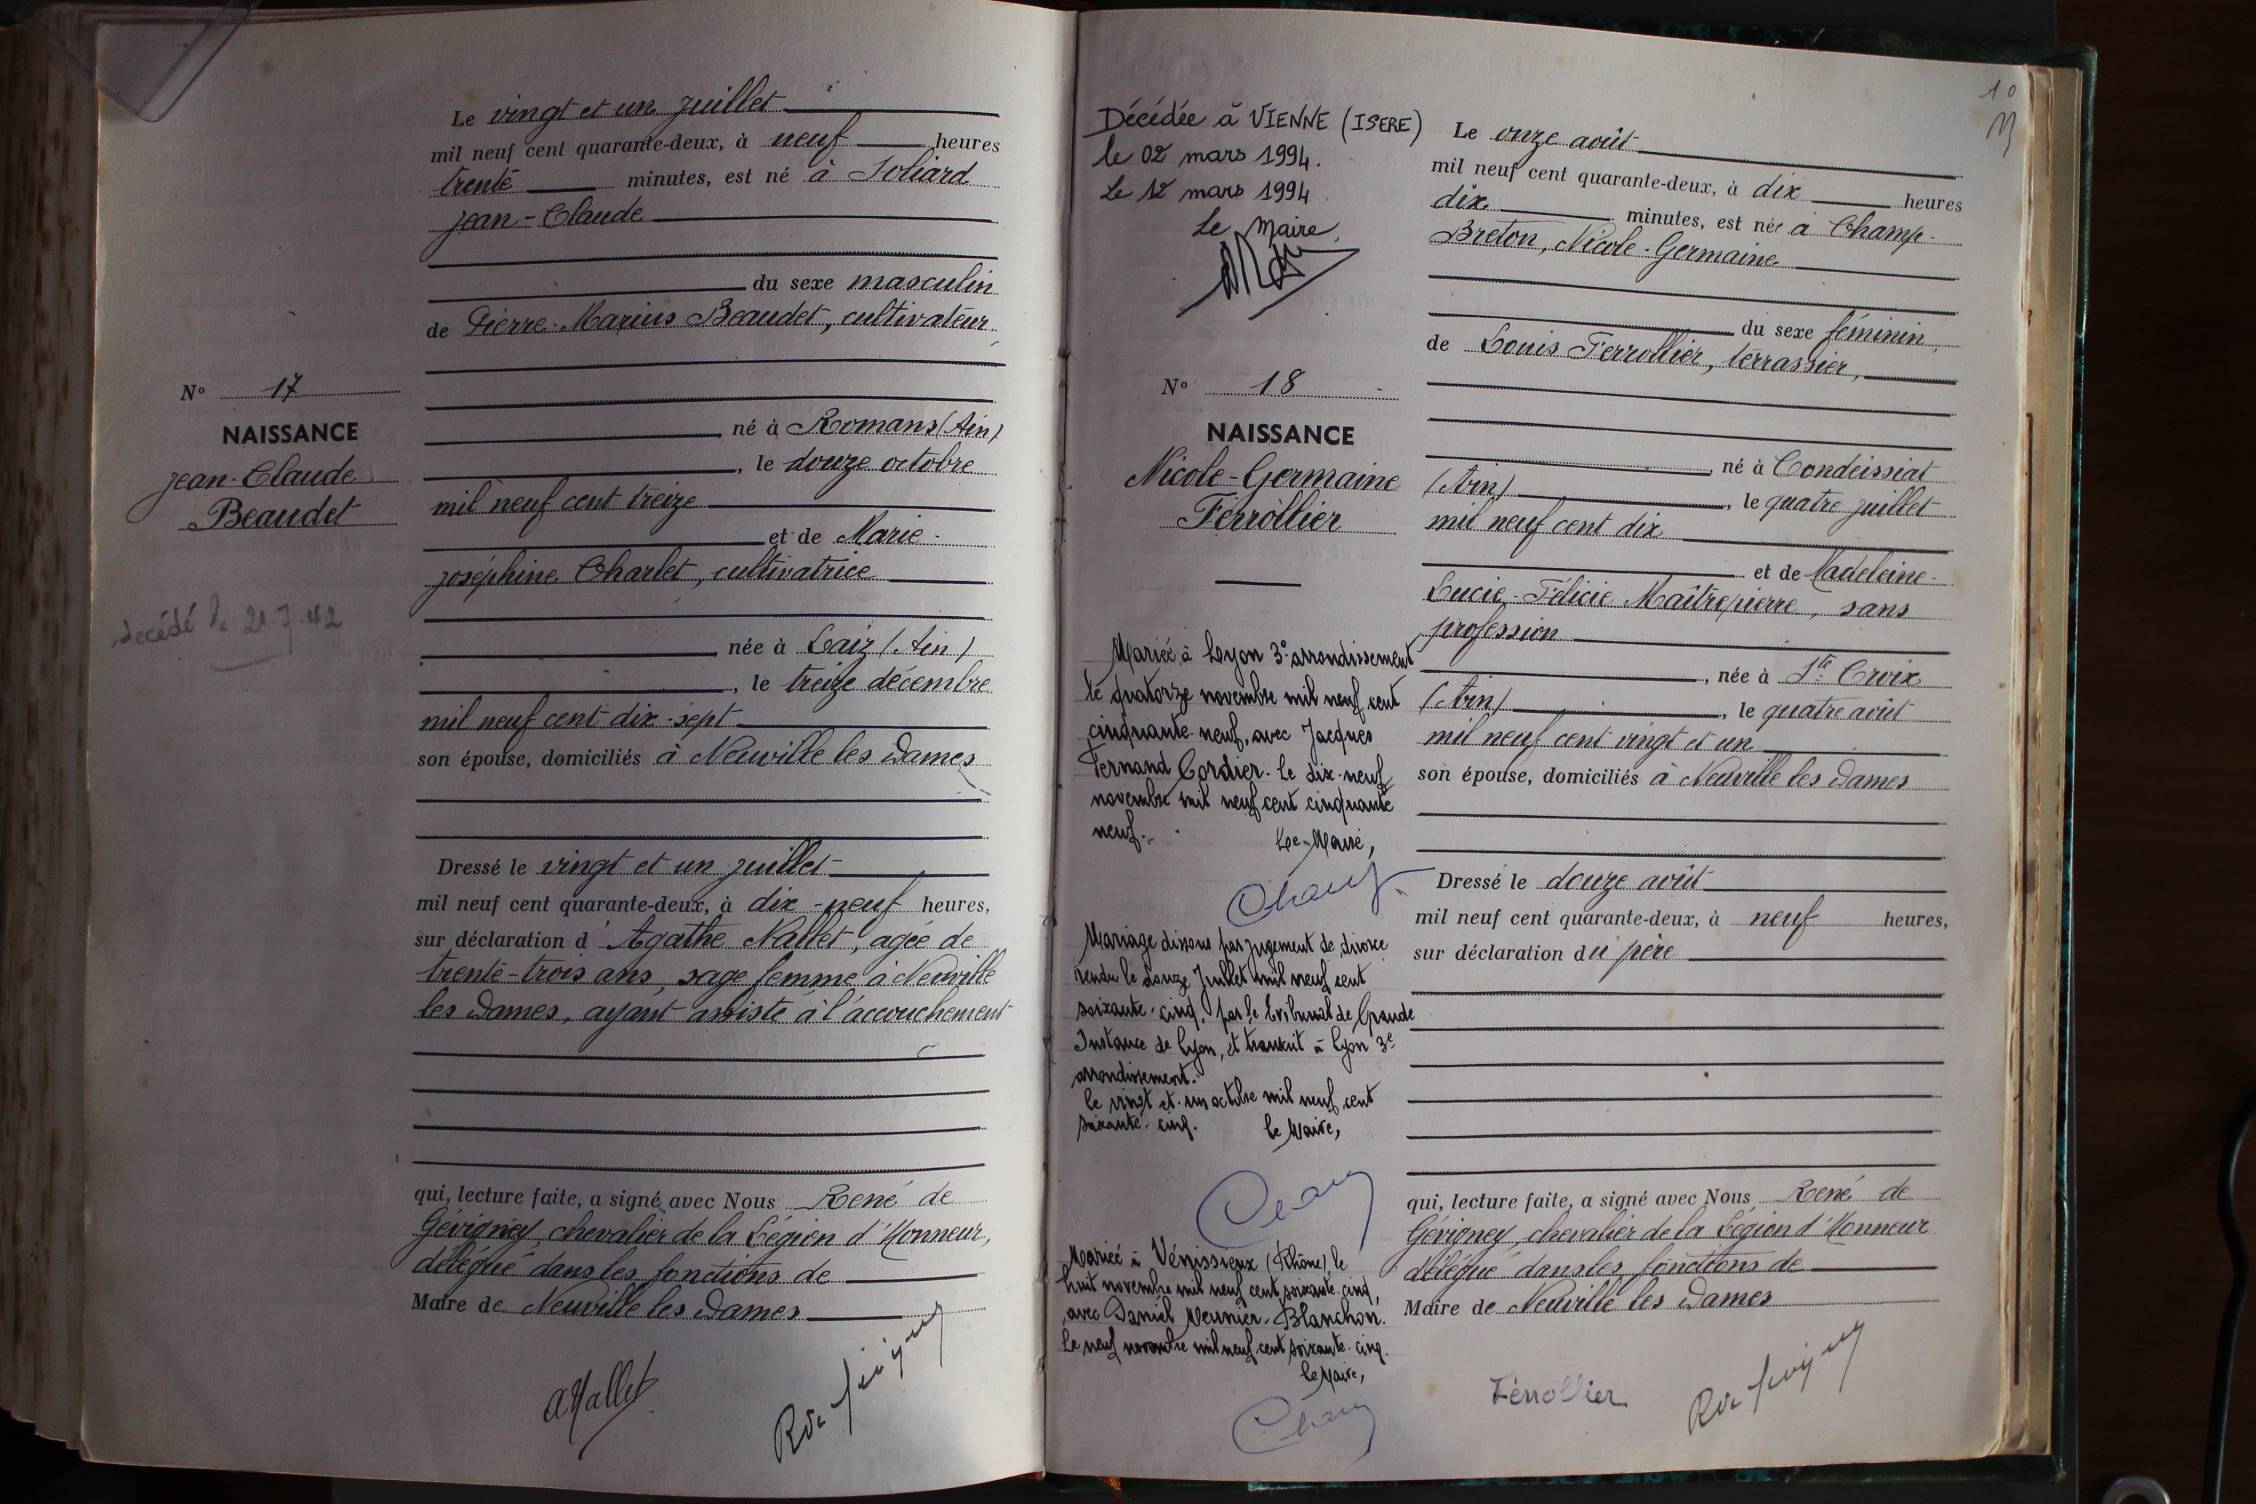 Le vingt et un juillet
mil neuf cent quarante-deux, à neuf heures
trente minutes, est né à Soliard
Jean-Claude
du sexe masculin
de Pierre-Marius Beaudet, cultivateur,
né à Romans (Ain)
, le douze octobre
mil neuf cent treize
et de Marie-
Joséphine Charlet, cultivatrice
née à Laiz (Ain)
, le treize décembre
mil neuf cent dix-sept
son épouse, domiciliés à Neuville les Dames
Dressé le vingt et un juillet
mil neuf cent quarante-deux, à dix-neuf heures,
sur déclaration d'Agathe Nallet, agée de
trente-trois ans, sage femme à Neuville
les Dames, ayant assisté à l'accouchement
qui, lecture faite, a signé avec Nous René de
Gévigney, chevalier de la Légion d'Honneur,
délégué dans les fonctions de
Maire de Neuville les Dames
A Nallet
No 17
NAISSANCE
Jean-Claude
Beaudet
decédé le 21.7.42
10
Décédée à VIENNE (ISERE)
le 02 mars 1994.
Le 12 mars 1994
Le Maire,
No 18
NAISSANCE
Nicole-Germaine
Ferrollier
Mariée à Lyon 3e arrondissement
le quatorze novembre mil neuf cent
cinquante-neuf, avec Jacques
Fernand Cordier. le dix-neuf
novembre mil neuf cent cinquante
neuf.
Le Maire,
Mariage dissous par jugement de divorce
rendu le douze Juillet mil neuf cent
soixante-cinq, par le tribunal de Grande
Instance de Lyon, et transcrit à Lyon 3e
arrondissement.
le vingt et un octobre mil neuf cent
soixante-cinq.
le Maire,
Mariée à Vénissieux (Rhône), le
huit novembre mil neuf cent soixante-cinq,
avec Daniel Meunier-Blanchon.
Le neuf novembre mil neuf cent soixante-cinq.
le Maire,
Le onze août
mil neuf cent quarante-deux, à dix heures
dix minutes, est née à Champ-
Breton, Nicole-Germaine
du sexe féminin,
de Louis Ferrollier, terrassier,
né à Condeissiat
(Ain), le quatre juillet
mil neuf cent dix
et de Madeleine-
Lucie-Félicie Maîtrepierre, sans
profession
, née à Ste Croix
(Ain), le quatre août
mil neuf cent vingt et un
son épouse, domiciliés à Neuville les Dames
Dressé le douze août
mil neuf cent quarante-deux, à neuf heures,
sur déclaration du père
qui, lecture faite, a signé avec Nous René de
Gévigney, chevalier de la Légion d'Honneur
délégué dans les fonctions de
Maire de Neuville les Dames
Ferrollier